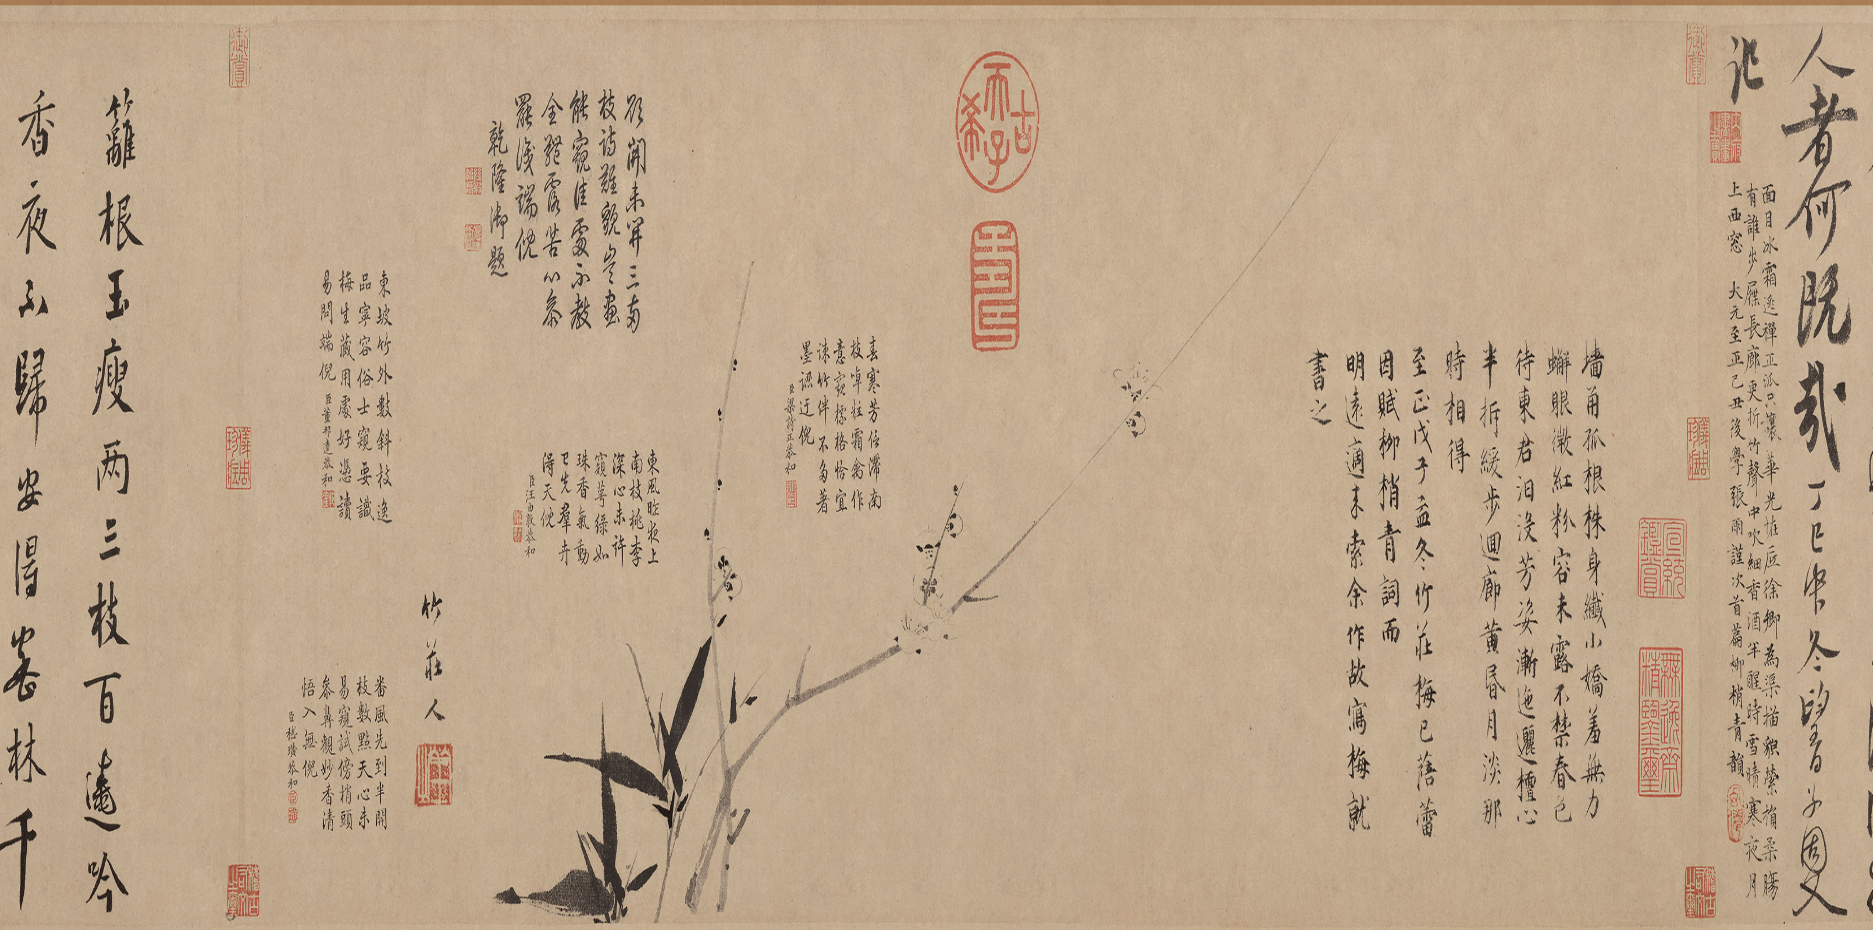 人者何既哉丁巳中冬望
記
面目冰霜逸禪正派只讓華光惟叵徐卿為渠描貌縈損柔腸
有誰步屧長廊更折竹聲中吹細香酒半醒時雪晴寒夜月
上西窓　大元至正己丑後學張雨謹次首篇柳梢青韻
墻角孤根株身纖小嬌羞無力
蠏眼微紅粉容未露不禁春色
待東君汩沒芳姿漸迤邐檀心
半拆緩步迴廊黃昏月淡那
時相得
至正戊子孟冬竹莊梅已蓓蕾
因賦柳梢青詞而
明遠適來索余作故寫梅就
書之
古希天子
春寒芳信滯南
枝啅粒霜禽作
意窺標格恰宜
詠竹伴不勾著
墨認迂倪
臣梁詩正恭和
欲開未開三兩
枝詩難貌豈畫
能窺佳處不教
全體露苦心參
罷識端倪
乾隆御題
東風昨夜上
南枝桃李
深心未許
窺萼綠如
珠香氣動
已先羣卉
得天倪
臣汪由敦恭和
竹莊人
東坡竹外數斜枝逸
品寧容俗士窺要識
梅生藏用處好憑讀
易問端倪
臣董邦達恭和
番風先到半開
枝數點天心未
易窺試傍梢頭
參鼻觀妙香清
悟入無倪
臣嵇璜恭和
御賞
籬根玉瘦兩三枝百遶吟
香夜不歸安得密林千